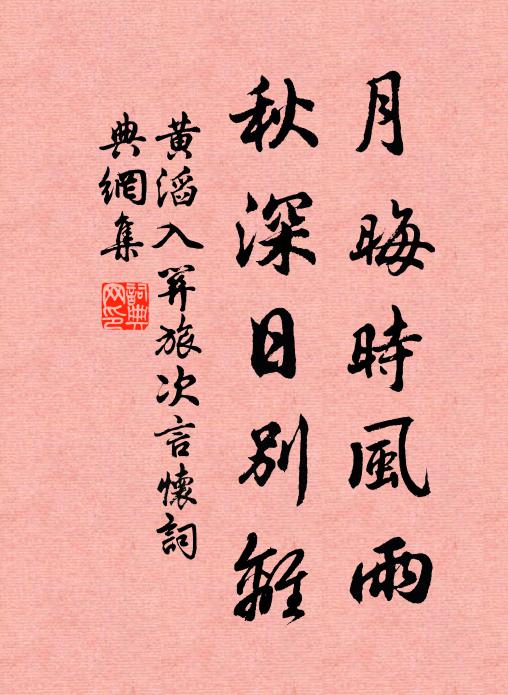 月晦時風雨
秋深日別離
黃滔入關旅次言懷詞
典網集
詞典網印